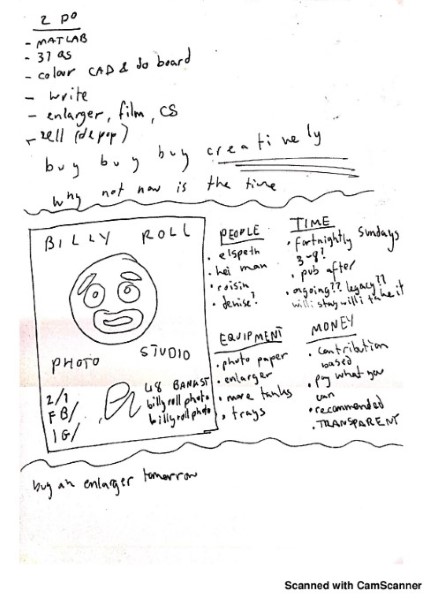 2 DO
- MATLAB
- 37 as
- colour CAD & do board
- write
- enlarger, film, CS
- sell (depop)
buy buy buy creatively
why not now is the time
BILLY ROLL
PHOTO STUDIO
2/1
FB/
IG/
48 BANKST
billyrollphoto
billyrollphoto
PEOPLE
• elspeth
• hei man
• roisin
• denise?
TIME
• fortnightly Sundays
3-8?
• pub after
• ongoing?? legacy??
will i stay will i take it
EQUIPMENT
• photo paper
• enlarger
• more tanks
• trays
MONEY
• contribution
based
• pay what you
can
• recommended
• TRANSPARENT
buy an enlarger tomorrow
Scanned with CamScanner